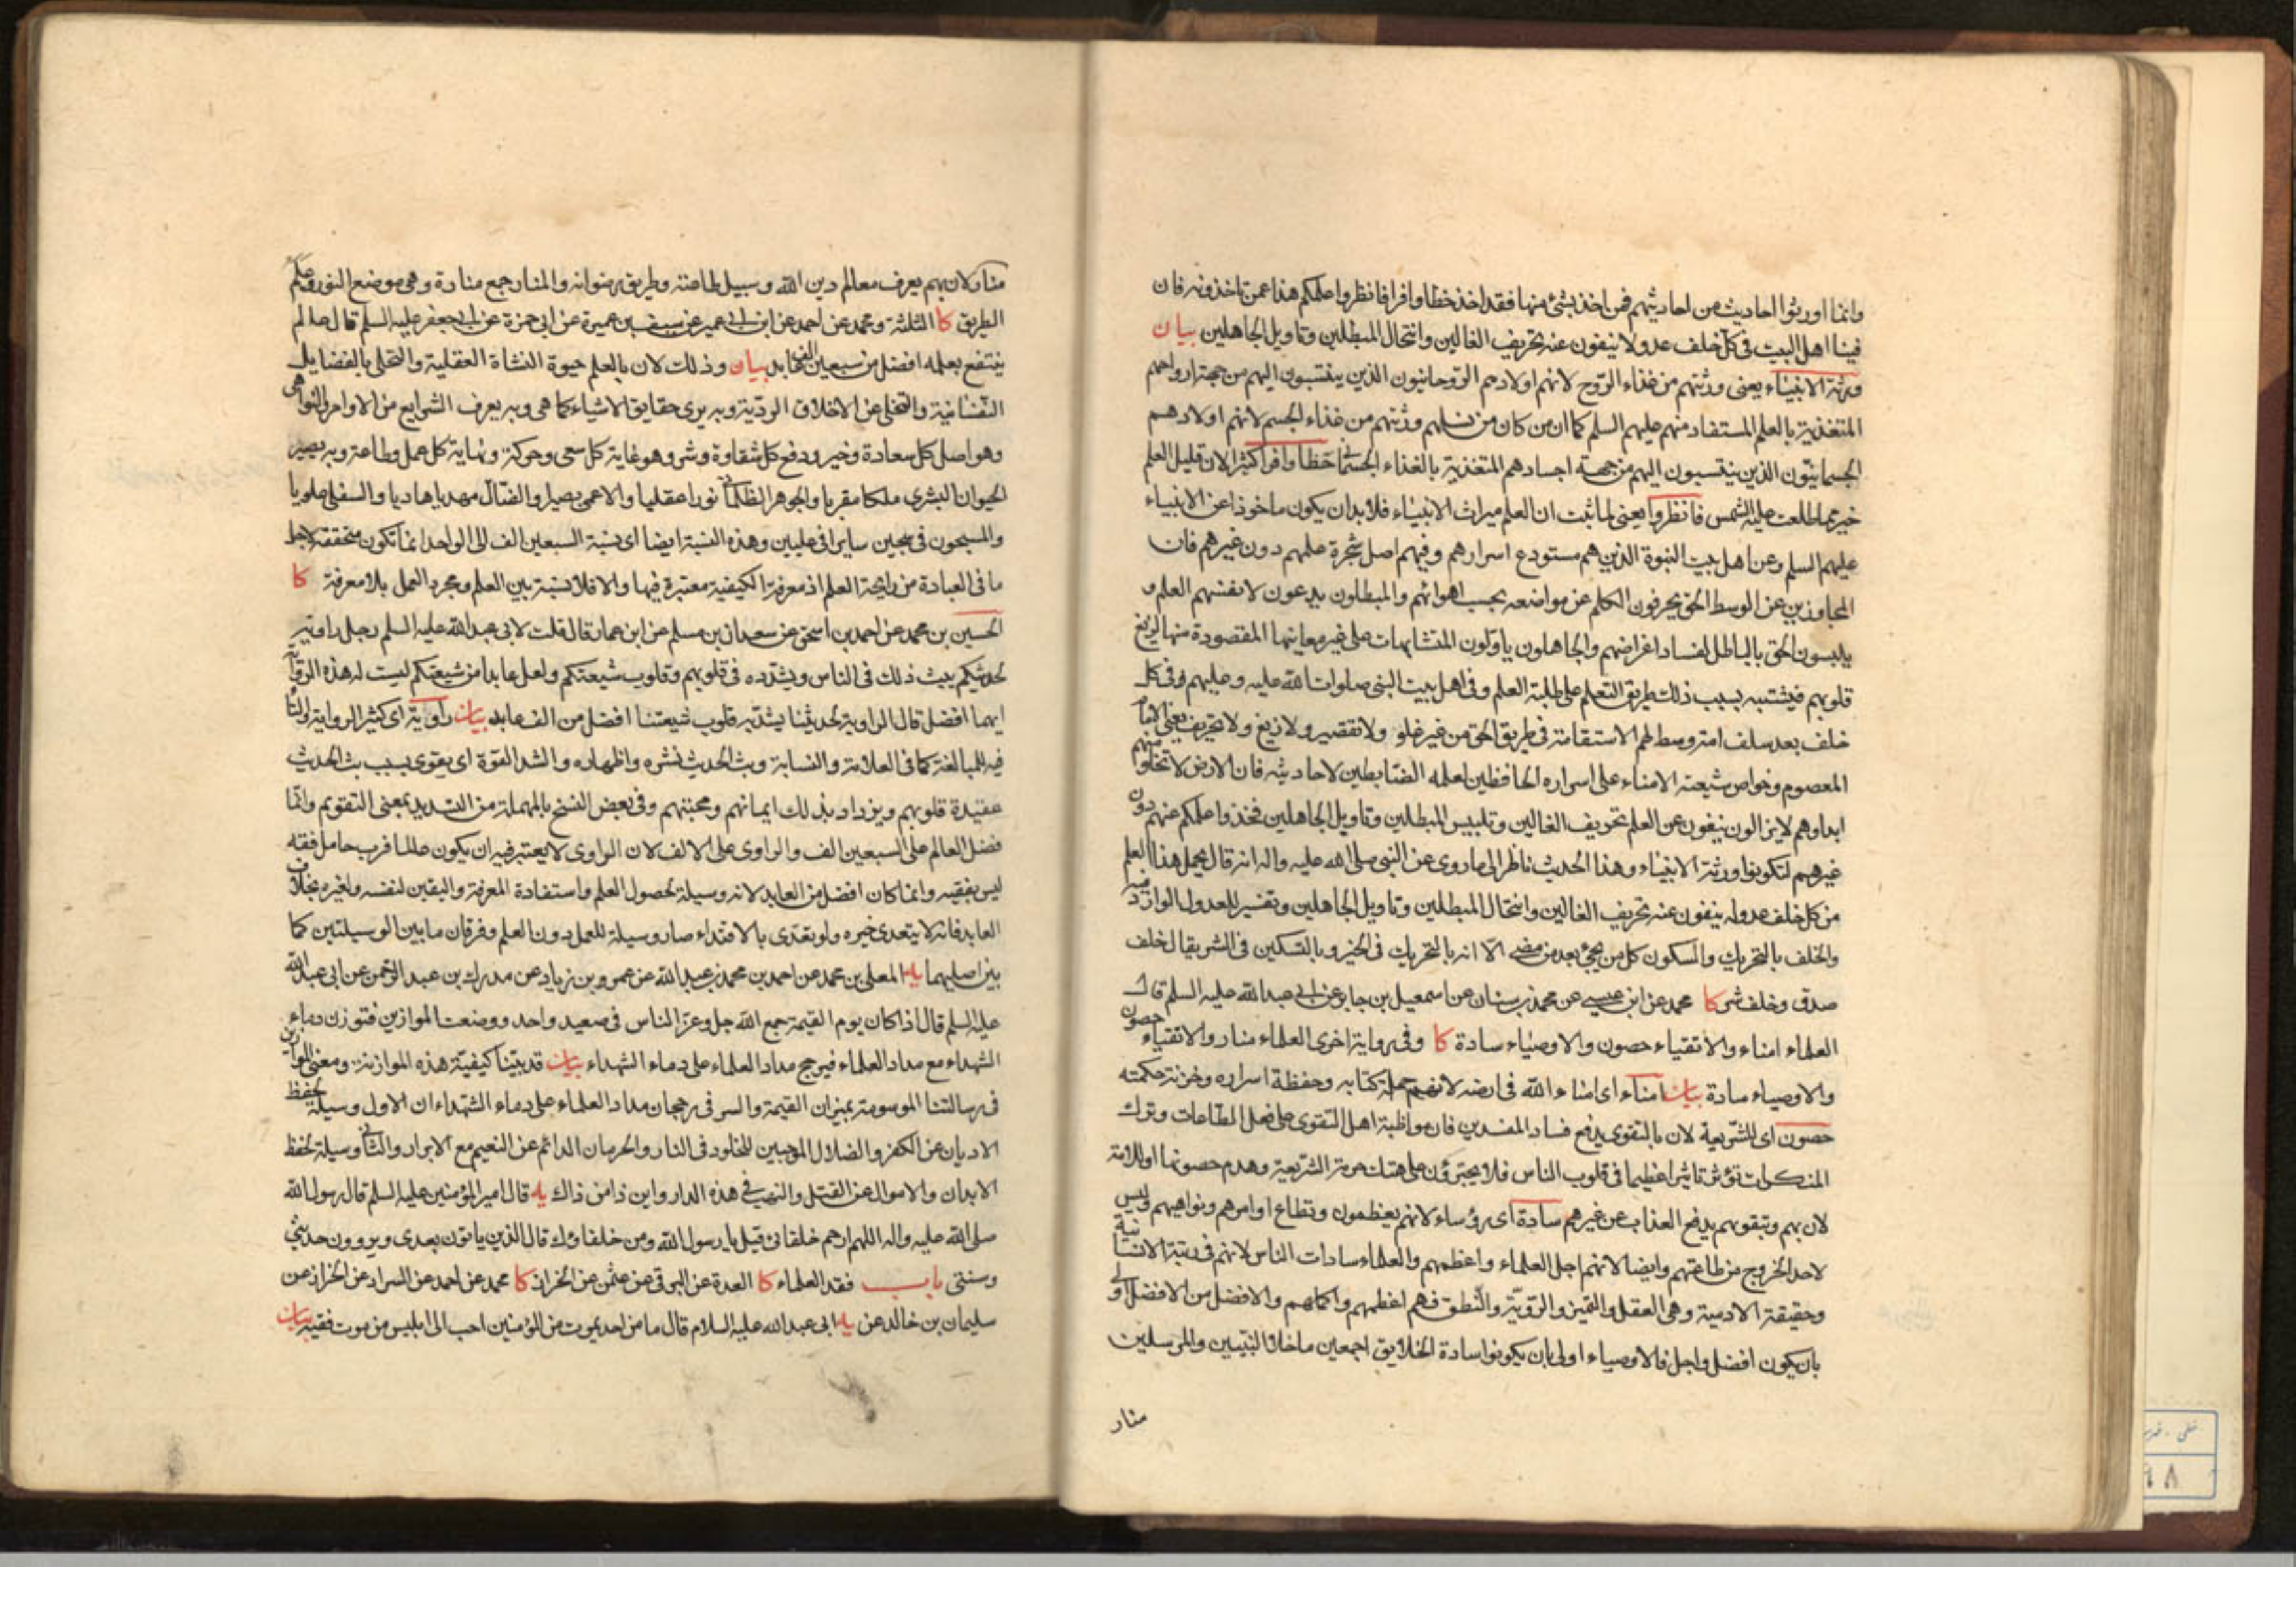 وانما اورثوا احاديث من احاديثهم فمن اخذ بشئ منها فقد اخذ حظا وافرا فانظروا علمكم هذا عمن تاخذونه فان
فينا اهل البيت فى كل خلف عدولا ينفون عنه تحريف الغالين وانتحال المبطلين وتاويل الجاهلين بيان
ورثة الانبياء يعنى ورثتهم من غذاء الروح لانهم اولادهم الروحانيون الذين ينتسبون اليهم من جهة ارواحهم
المتغذية بالعلم المستفاد منهم عليهم السلم كما ان من كان من نسلهم ورثتهم من غذاء الجسم لانهم اولادهم
الجسمانيون الذين ينتسبون اليهم من جهة اجسادهم المتغذية بالغذاء الجسمانى حظا وافرا كثيرا لان قليل العلم
خير مما طلعت عليه الشمس فانظروا يعنى لما ثبت ان العلم ميراث الانبياء فلا بد ان يكون ماخوذا عن الانبياء
عليهم السلم وعن اهل بيت النبوة الذين هم مستودع اسرارهم وفيهم اصل شجرة علمهم دون غيرهم فان
المجاوزين عن الوسط الحق يحرفون الكلم عن مواضعه بحسب اهوائهم والمبطلون يدعون لانفسهم العلم و
يلبسون الحق بالباطل لفساد اغراضهم والجاهلون ياولون المتشابهات على غير معانيها المقصودة منها لزيغ
قلوبهم فيشتبه بسبب ذلك طريق التعلم على طلبة العلم وفى اهل بيت النبى صلوات الله عليه وعليهم فى كل
خلف بعد سلف امة وسط لهم الاستقامة فى طريق الحق من غير غلو ولا تقصير ولا زيغ ولا تحريف يعنى الامام
المعصوم وخواص شيعته الامناء على اسراره الحافظين لعلمه الضابطين لاحاديثه فان الارض لا تخلوا منهم
ابدا وهم لا يزالون ينفون عن العلم تحريف الغالين وتلبيس المبطلين وتاويل الجاهلين فخذوا علمكم عنهم دون
غيرهم لتكونوا ورثة الانبياء وهذا الحديث ناظر الى ما روى عن النبى صلى الله عليه واله انه قال يحمل هذا العلم
من كل خلف عدوله ينفون عنه تحريف الغالين وانتحال المبطلين وتاويل الجاهلين وتفسير للعدول الوارد فيه
والخلف بالتحريك والسكون كل من يجئ بعد من مضى الا انه بالتحريك فى الخير وبالتسكين فى الشر يقال خلف
صدق وخلف شر كا محمد عن ابن عيسى عن محمد بن سنان عن اسمعيل بن جابر عن ابى عبد الله عليه السلم قال
العلماء امناء والاتقياء حصون والاوصياء سادة كا وفى رواية اخرى العلماء منار والاتقياء حصون
والاوصياء سادة بيان امناء اى امناء الله فى ارضه لانهم حملة كتابه وحفظة اسراره وخزنة حكمته
حصون اى للشريعة لان بالتقوى يدفع فساد المفسدين فان مواظبة اهل التقوى على فعل الطاعات وترك
المنكرات تؤثر تاثيرا عظيما فى قلوب الناس فلا يجترؤن على هتك حرمة الشريعة وهدم حصونها او للامة
لان بهم وبتقوىهم يدفع العذاب عن غيرهم سادة اى رؤساء لانهم يعظمون وتطاع اوامرهم ونواهيهم وليس
لاحد الخروج من طاعتهم وايضا لانهم اجل العلماء واعظمهم والعلماء سادات الناس لانهم فى رتبة الانسانية
وحقيقة الادمية وهى العقل والتميز والروية والنطق فهم اعظمهم واكملهم والافضل من الافضل اولى
بان يكون افضل واجل فالاوصياء اولى بان يكونوا سادة الخلايق اجمعين ما خلا النبيين والمرسلين
منار
منار لان بهم يعرف معالم دين الله وسبيل طاعته وطريق رضوانه والمنار جمع منارة وهى موضع النور وعلم
الطريق كا الثلثة ومحمد عن احمد عن ابن ابى عمير عن سيف بن عميرة عن ابى حمزة عن ابى جعفر عليه السلم قال عالم
ينتفع بعلمه افضل من سبعين الف عابد بيان وذلك لان بالعلم حيوة النشاة العقلية والتحلى بالفضايل
النفسانية والتخلى عن الاخلاق الردية وبه يرى حقايق الاشياء كما هى وبه يعرف الشرايع من الاوامر والنواهى
وهو اصل كل سعادة وخير ودفع كل شقاوة وشر وهو غاية كل سعى وحركة ونهاية كل عمل وطاعة وبه يصير
الحيوان البشرى ملكا مقربا والجوهر الظلمانى نورا عقليا والاعمى بصيرا والضال مهديا هاديا والسفلى علويا
والمسجون فى سجين سايرا فى عليين وهذه النسبة ايضا اى نسبة السبعين الف الى الواحد انما تكون متحققة لاجل
ما فى العبادة من رايحة العلم اذ معرفة الكيفية معتبرة فيها والا فلا نسبة بين العلم ومجرد العمل بلا معرفة كا
الحسين بن محمد عن احمد بن اسحق عن سعدان بن مسلم عن ابن عمار قال قلت لابى عبد الله عليه السلم رجل راوية
لحديثكم يبث ذلك فى الناس ويشدده فى قلوبهم وقلوب شيعتكم ولعل عابدا من شيعتكم ليست له هذه الرواية
ايهما افضل قال الراوية لحديثنا يشد به قلوب شيعتنا افضل من الف عابد بيان راوية اى كثير الرواية والتاء
فيه للمبالغة كما فى العلامة والنسابة وبث الحديث نشره واظهاره والشد القوة اى يقوى بسبب بث الحديث
عقيدة قلوبهم ويزداد بذلك ايمانهم ومحبتهم وفى بعض النسخ بالمهملة من التسديد بمعنى التقويم وانما
فضل العالم على السبعين الف والراوى على الالف لان الراوى لا يعتبر فيه ان يكون عالما فرب حامل فقه
ليس بفقيه وانما كان افضل من العابد لانه وسيلة لحصول العلم واستفادة المعرفة واليقين لنفسه ولغيره بخلاف
العابد فانه لا يتعدى خيره ولو تعدى بالاقتداء صار وسيلة للعمل دون العلم وفرقان ما بين الوسيلتين كما
بين اصليهما يه المعلى بن محمد عن احمد بن محمد بن عبد الله عن عمرو بن زياد عن مدرك بن عبد الرحمن عن ابى عبد الله
عليه السلم قال اذا كان يوم القيمة جمع الله جل وعز الناس فى صعيد واحد ووضعت الموازين فتوزن دماء
الشهداء مع مداد العلماء فيرجح مداد العلماء على دماء الشهداء بيان قد بينا كيفية هذه الموازنة ومعنى الموازين
فى رسالتنا الموسومة بميزان القيمة والسر فى رجحان مداد العلماء على دماء الشهداء ان الاول وسيلة لحفظ
الاديان عن الكفر والضلال الموجبين للخلود فى النار والحرمان الدائم عن النعيم مع الابرار والثانى وسيلة لحفظ
الابدان والاموال عن القتل والنهب فى هذه الدار واين ذا من ذاك يه قال امير المؤمنين عليه السلم قال رسول الله
صلى الله عليه واله اللهم ارحم خلفائى قيل يا رسول الله ومن خلفاؤك قال الذين ياتون بعدى ويروون حديثى
وسنتى باب فقد العلماء كا العدة عن البرقى عن عثمن عن الخراز كا محمد عن احمد عن السراد عن الخراز عن
سليمان بن خالد عن يه ابى عبد الله عليه السلام قال ما من احد يموت من المؤمنين احب الى ابليس من موت فقيه بيان